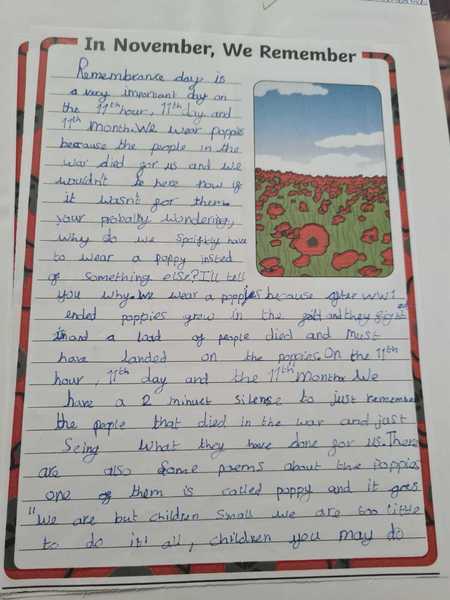 In November, We Remember
Remembrance day is
a very important day on
the 11th hour, 11th day and
11th Month. We wear poppies
because the people in the
war died for us and we
wouldn't be here now if
it wasn't for them
your probally wondering,
why do we spesifikly have
to wear a poppy insted
of something else? I'll tell
you why. We wear a poppies because after WW1
ended poppies grew in the and they
and a load of people died and must
have landed on the poppies. On the 11th
hour, 11th day and the 11th Month. We
have a 2 minuet silense to just remember
the people that died in the war and just
Seing what they have done for us. There
are also some poems about the Poppies
one of them is called poppy and it goes
"We are but children small we are too little
to do it all, children you may do